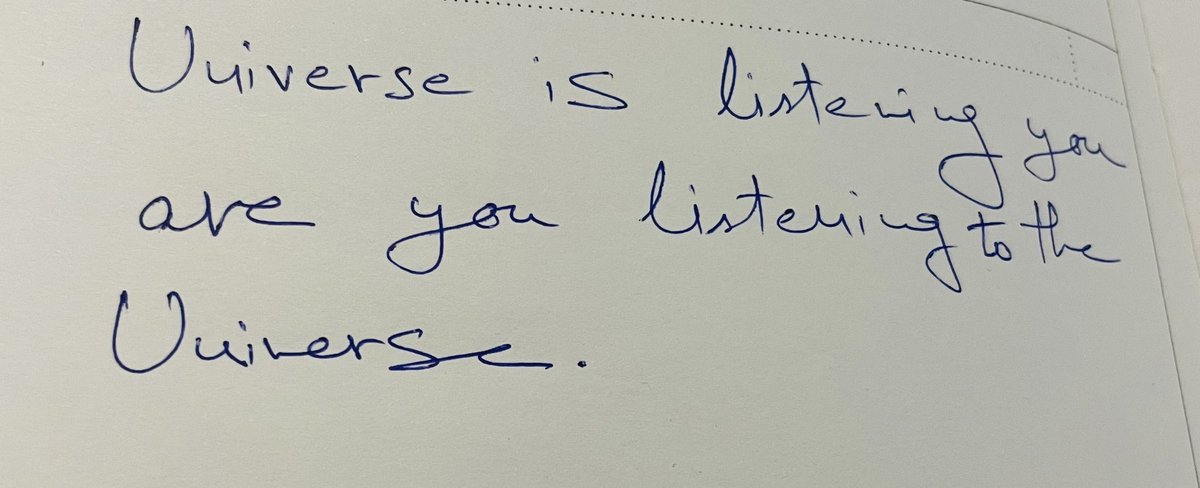 Universe is listening you
are you listening to the
Universe.